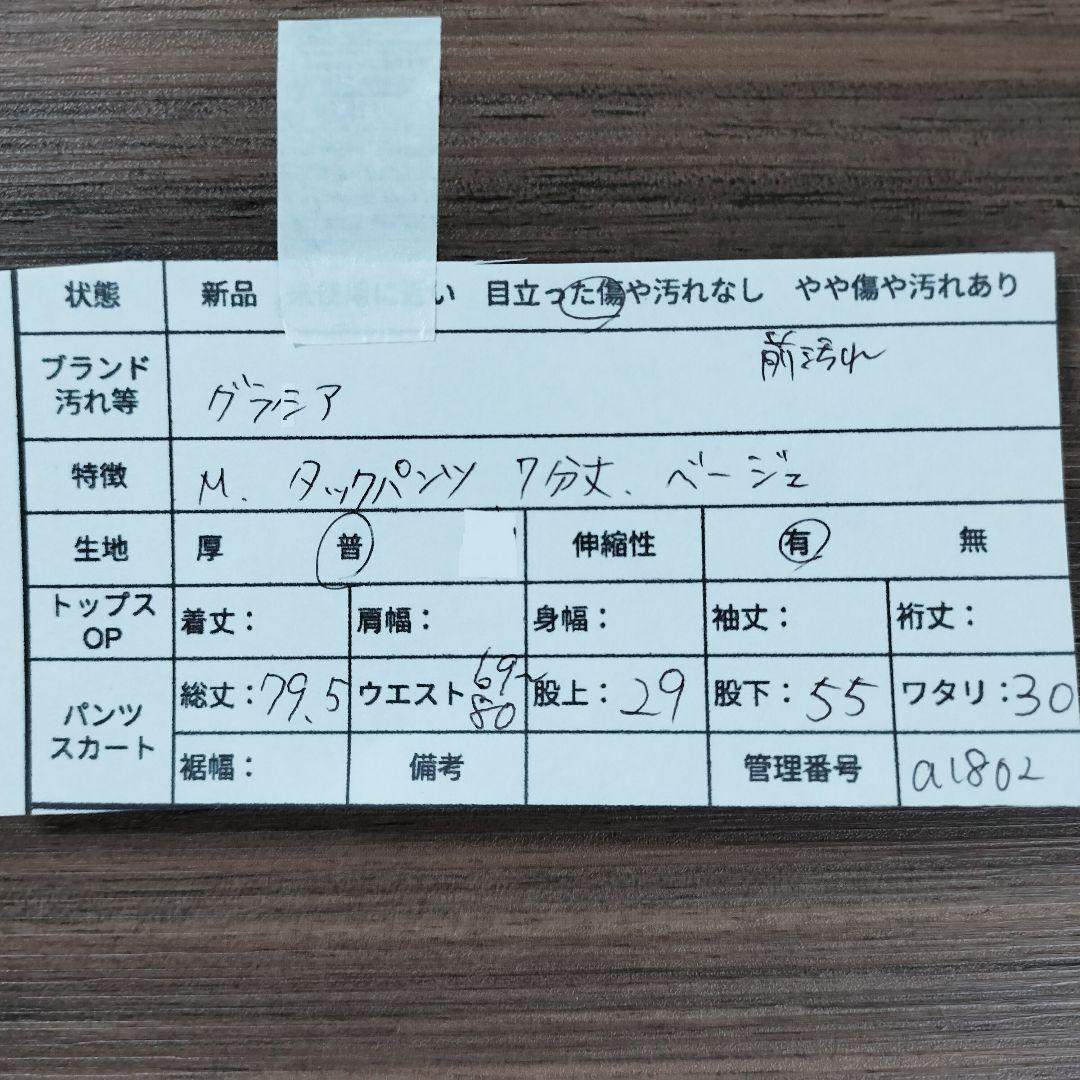 状態 新品 未使用に近い 目立った傷や汚れなし やや傷や汚れあり
ブランド 前汚れ
汚れ等 グラシア
特徴 M. タックパンツ 7分丈. ベージュ
生地 厚 普 伸縮性 有 無
トップス
OP 着丈: 肩幅: 身幅: 袖丈: 裄丈:
パンツ
スカート 総丈:79.5 ウエスト 69~80 股上:29 股下:55 ワタリ:30
裾幅: 備考 管理番号 a1802